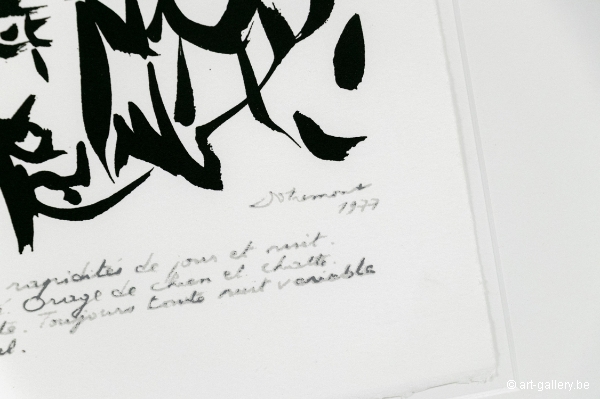 Dotremont
1977
rapidités de jour et nuit.
Orage de chien et chatte.
te. Toujours toute nuit variable
el.
© art-gallery.be